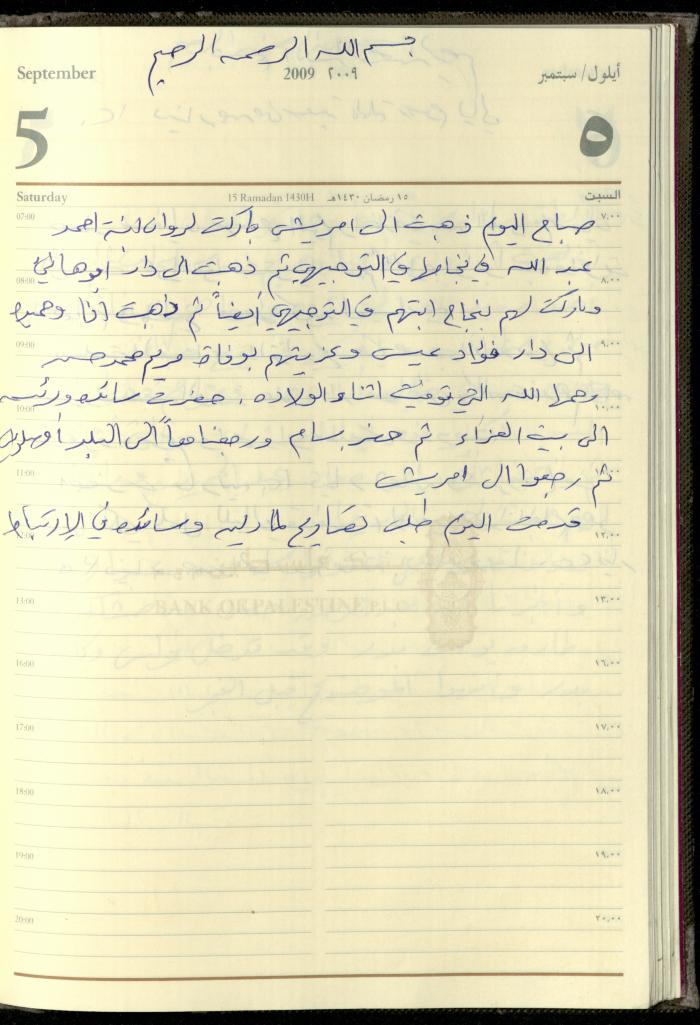 بسم الله الرحمن الرحيم
September 2009 ٢٠٠٩ أيلول/سبتمبر
5 ٥
Saturday 15 Ramadan 1430H ١٥ رمضان ١٤٣٠هـ السبت
07:00 ٧,٠٠
صباح اليوم ذهبت الى امريش باركت لروان ابنة احمد
عبد الله في نجاحها في التوجيهي ثم ذهبت الى دار ابو هاني
08:00 ٨,٠٠
وباركت لهم بنجاح ابنتهم في التوجيهي أيضاً ثم ذهبت انا وحميده
09:00 ٩,٠٠
الى دار فؤاد عيسى وعزيتهم بوفاة مريم محمد حسن
رحمها الله التي توفيت اثناء الولاده . حضرت سائده ورئسه
10:00 ١٠,٠٠
الى بيت العزاء ثم حضر بسام ورجعنا معاً الى البلد أفطروا
11:00 ١١,٠٠
ثم رجعوا ال امريش
قدمت اليوم طلب تصاريح لمادلين وسائده في الإرتباط
١٢,٠٠
BANK OF PALESTINE P.L.C
13:00 ١٣,٠٠
16:00 ١٦,٠٠
17:00 ١٧,٠٠
18:00 ١٨,٠٠
19:00 ١٩,٠٠
20:00 ٢٠,٠٠